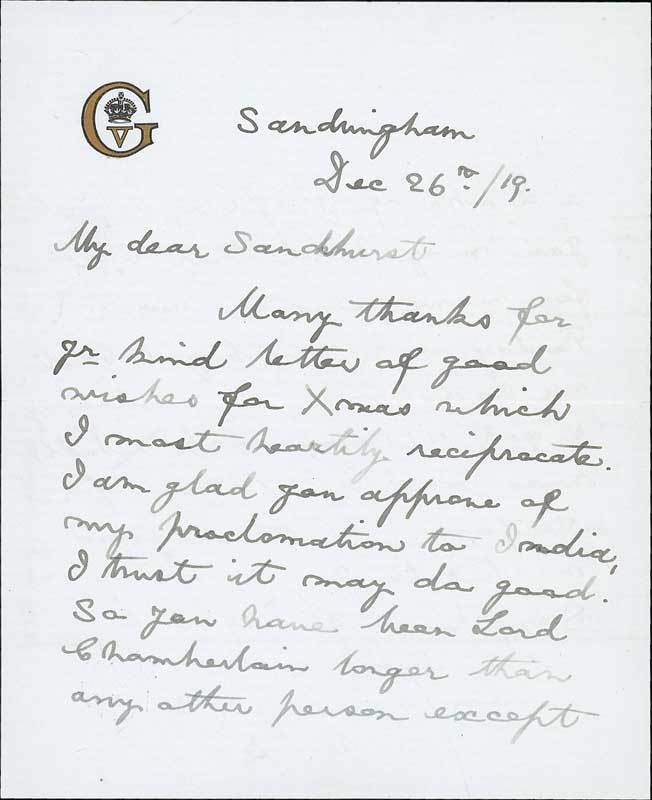 G V
Sandringham
Dec 26th/19.
My dear Sandhurst
Many thanks for
yr kind letter of good
wishes for Xmas which
I most heartily reciprocate.
I am glad you approve of
my proclamation to India,
I trust it may do good.
So you have been Lord
Chamberlain longer than
any other person except